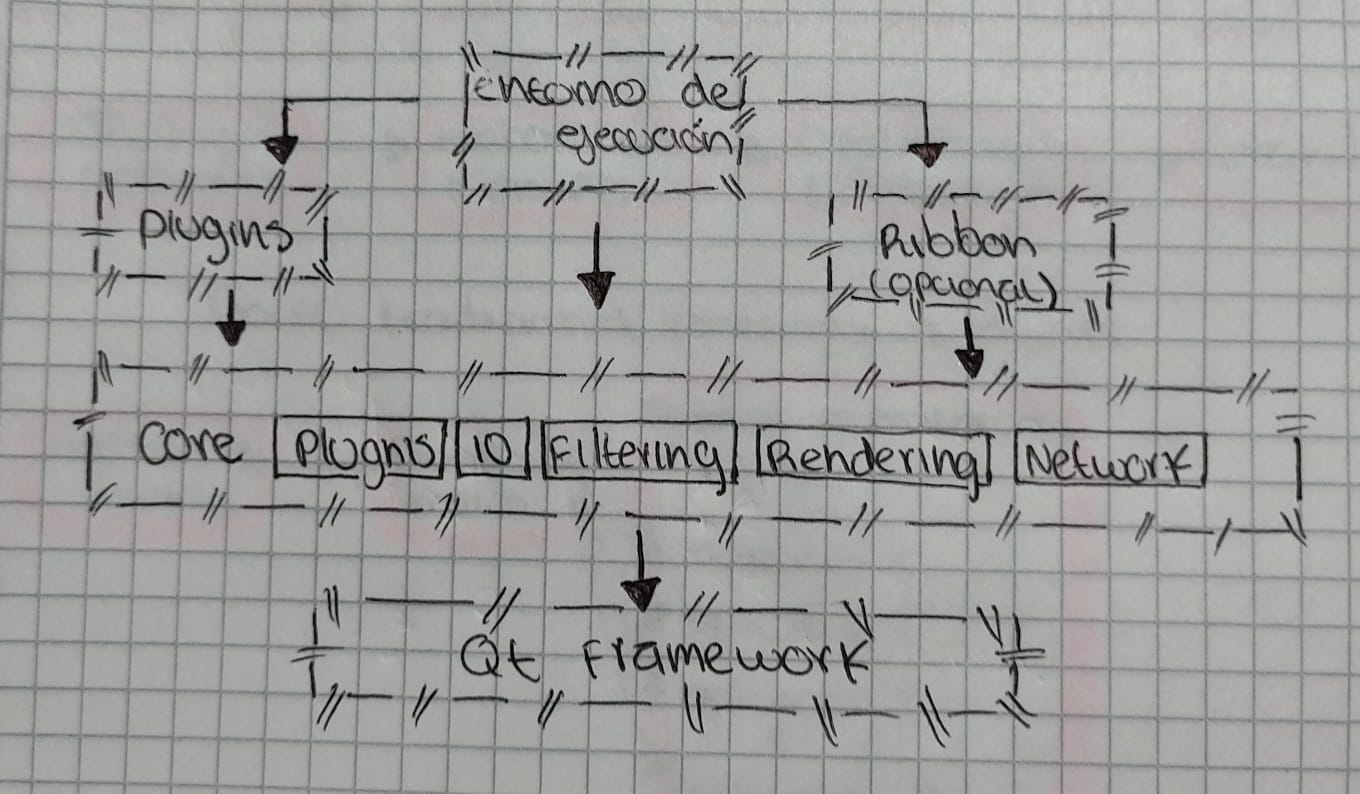 Entorno de
ejecución
Plugins
Ribbon
(opcional)
Core Plugins IO Filtering Rendering Network
Qt Framework